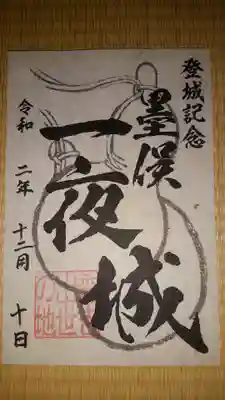 登城記念
墨俣
一夜
城
出世
の地
令和
二年
十二月
十日